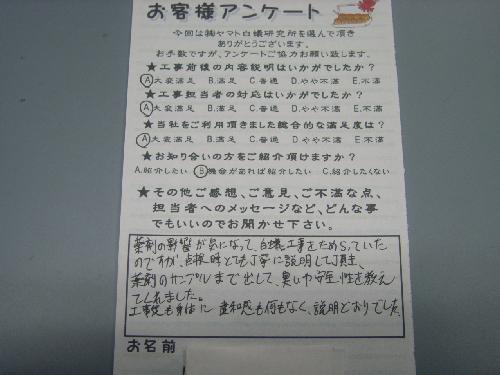 お客様アンケート
今回は㈱ヤマト白蟻研究所を選んで頂き
ありがとうございます。
お手数ですが、アンケートご協力お願い致します。
★工事前後の内容説明はいかがでしたか?
A.大変満足 B.満足 C.普通 D.やや不満 E.不満
★工事担当者の対応はいかがでしたか?
A.大変満足 B.満足 C.普通 D.やや不満 E.不満
★当社をご利用頂きました総合的な満足度は?
A.大変満足 B.満足 C.普通 D.やや不満 E.不満
★お知り合いの方をご紹介頂けますか?
A.紹介したい B.機会があれば紹介したい C.紹介したくない
★その他ご感想、ご意見、ご不満な点、
担当者へのメッセージなど、どんな事
でもいいのでお聞かせ下さい。
薬剤の影響が気になって、白蟻工事をためらっていた
のですが、点検時とても丁寧に説明して頂き、
薬剤のサンプルまで出して、臭いや安全性を教え
てくれました。
工事後も身体に違和感も何もなく、説明どおりでした。
お名前